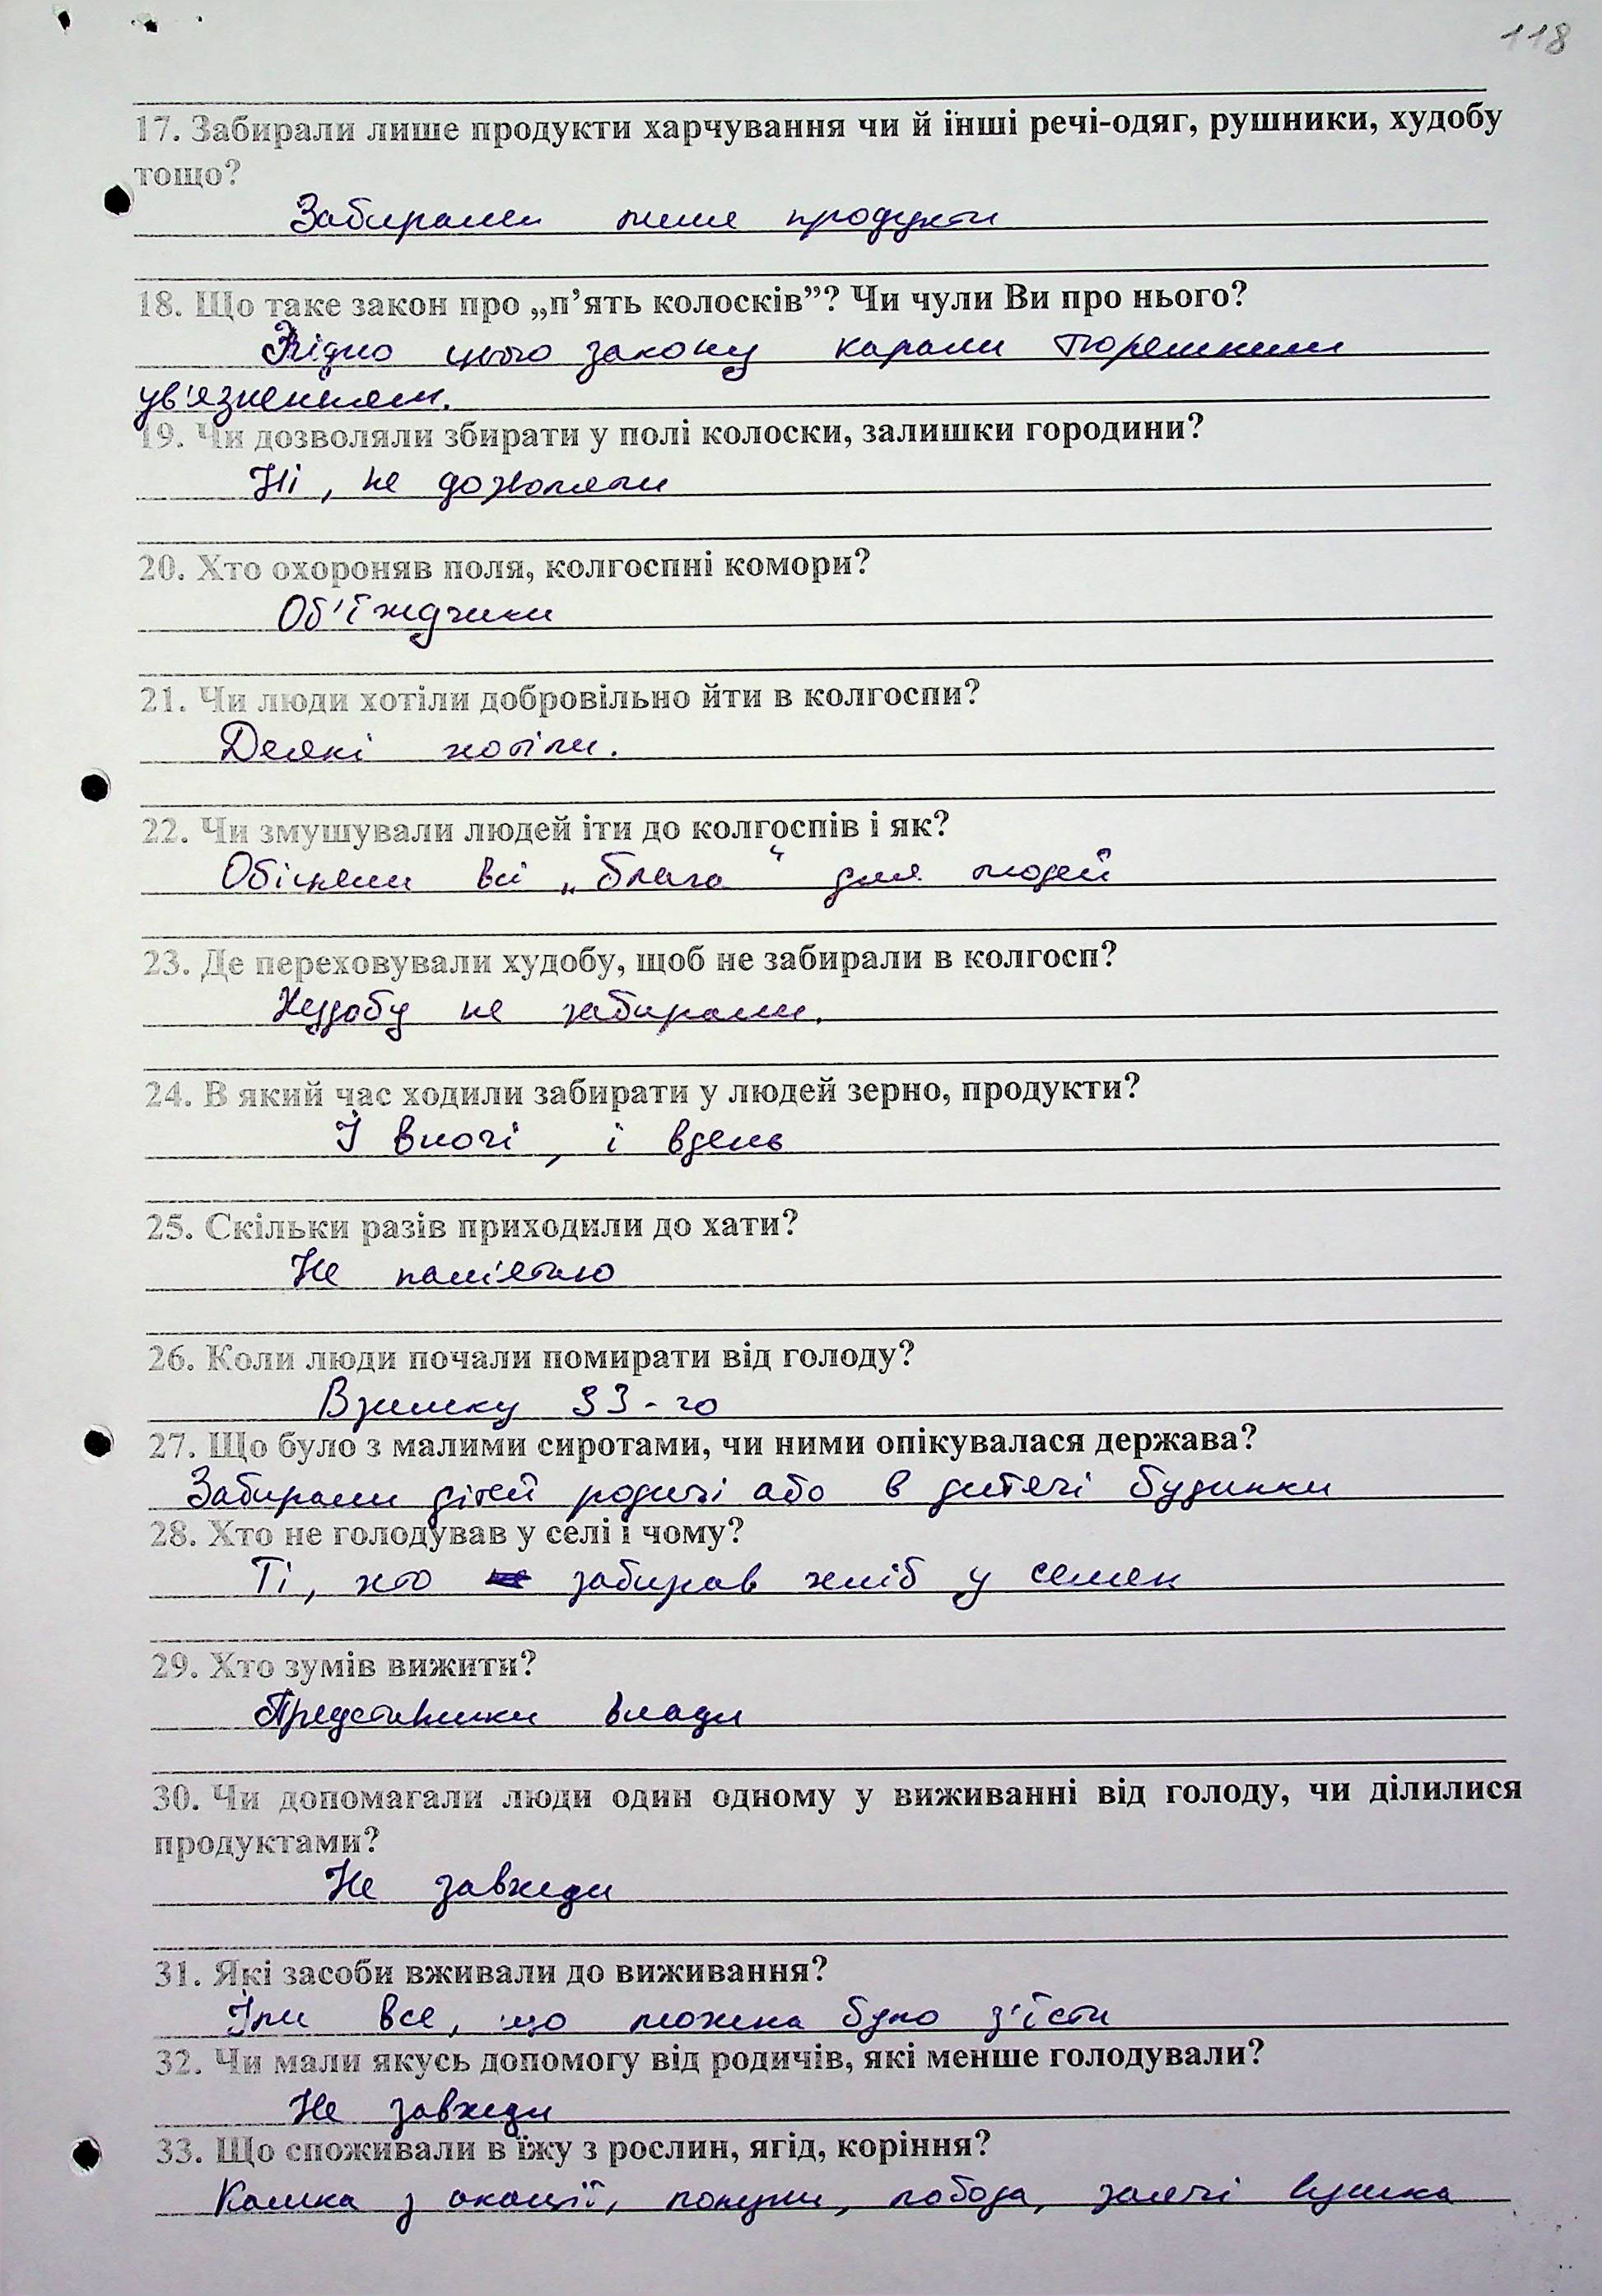 118
17. Забирали лише продукти харчування чи й інші речі-одяг, рушники, худобу
тощо?
Забирали лише продукти
18. Що таке закон про „п’ять колосків”? Чи чули Ви про нього?
Згідно цього закону карали тюремним
ув'язненням.
19. Чи дозволяли збирати у полі колоски, залишки городини?
Ні, не дозволяли
20. Хто охороняв поля, колгоспні комори?
Об'їждчики
21. Чи люди хотіли добровільно йти в колгоспи?
Деякі хотіли.
22. Чи змушували людей іти до колгоспів і як?
Обіцяли всі „блага“ для людей
23. Де переховували худобу, щоб не забирали в колгосп?
Худобу не забирали.
24. В який час ходили забирати у людей зерно, продукти?
І вночі, і вдень
25. Скільки разів приходили до хати?
Не пам'ятаю
26. Коли люди почали помирати від голоду?
Взимку 33-го
27. Що було з малими сиротами, чи ними опікувалася держава?
Забирали дітей родичі або в дитячі будинки
28. Хто не голодував у селі і чому?
Ті, хто забирав хліб у селян
29. Хто зумів вижити?
Представники влади
30. Чи допомагали люди один одному у виживанні від голоду, чи ділилися
продуктами?
Не завжди
31. Які засоби вживали до виживання?
Їли все, що можна було з'їсти
32. Чи мали якусь допомогу від родичів, які менше голодували?
Не завжди
33. Що споживали в їжу з рослин, ягід, коріння?
Кашка з акації, лопухи, лобода, заячі вушка